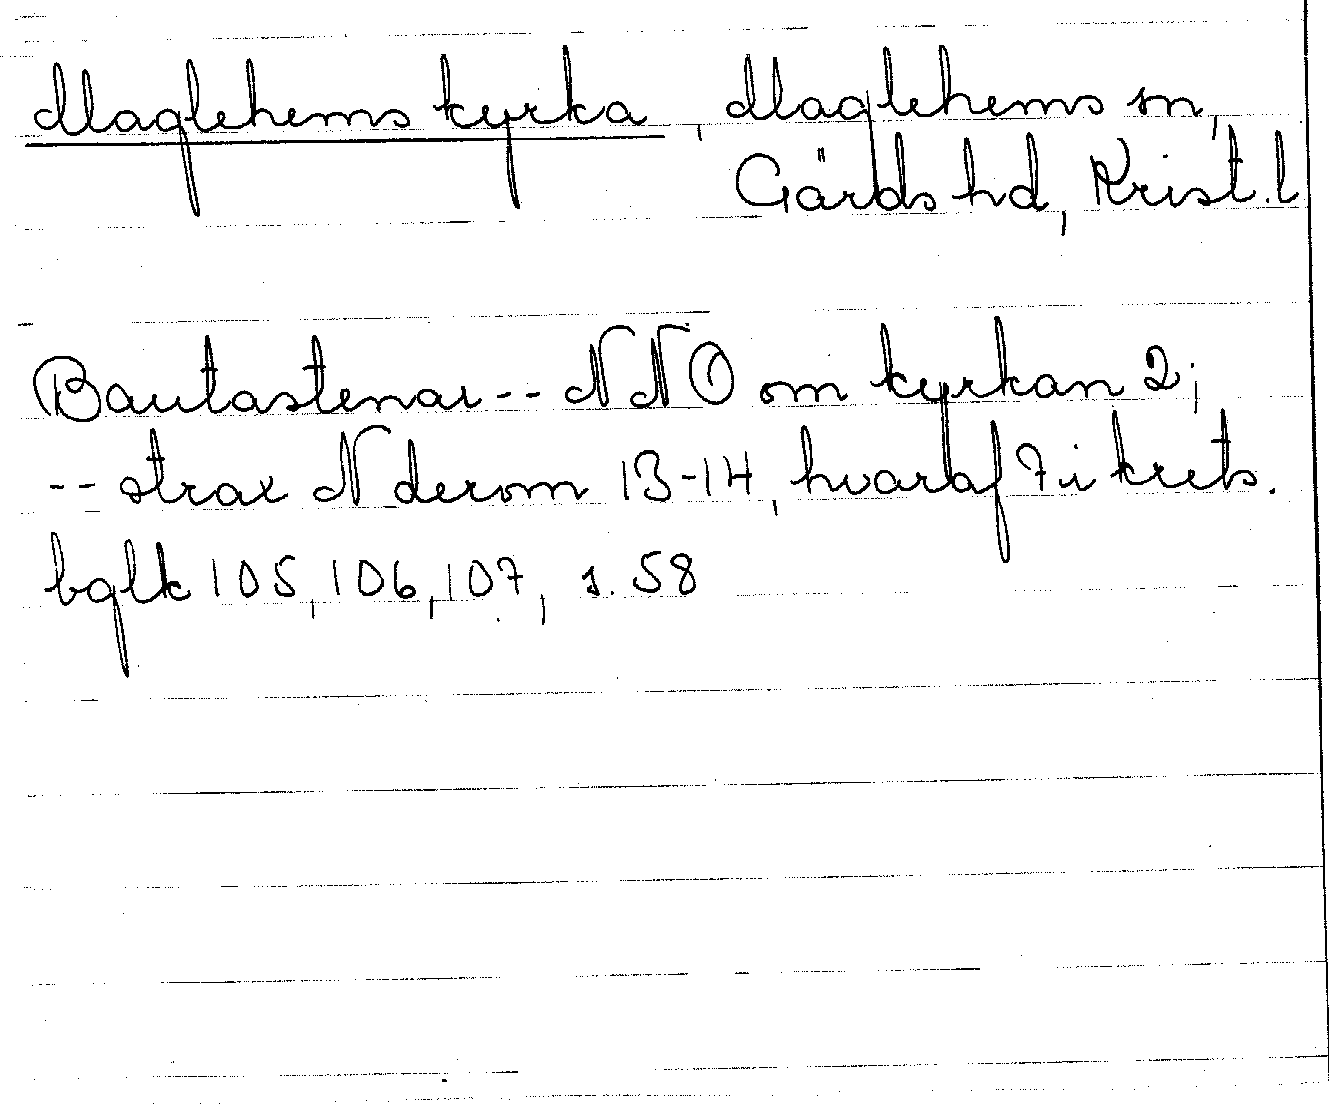 Maglehems kyrka, Maglehems sn,
Gärds hd, Krist.l
Bautastenar -- NNO om kyrkan 2;
-- strax N derom 13-14, hvaraf 7 i krets.
bglk 105, 106, 107, s. 58